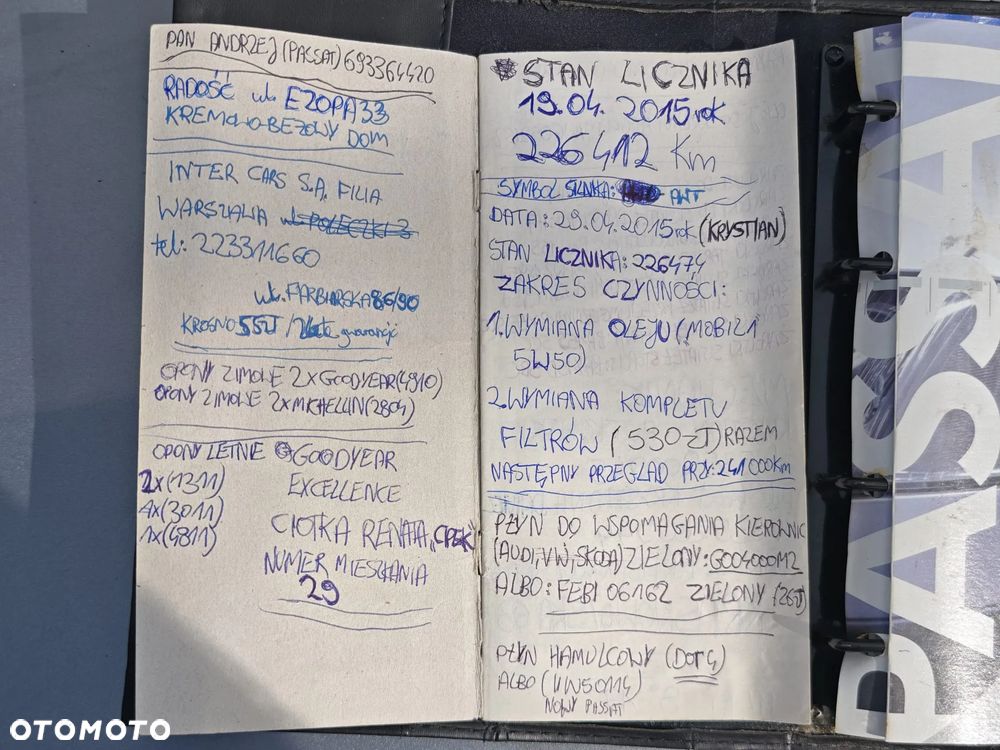 PAN ANDRZEJ (PASSAT) 693364420
RADOŚĆ ul. EZOPA 33
KREMOWO-BEŻOWY DOM
INTER CARS S.A. FILIA
WARSZAWA ul. POŁECZKI 3
tel: 223311660
ul. FARBIARSKA 86/90
KROSNO 55ZŁ / gwarancji
OPONY ZIMOWE 2x GOODYEAR (4910)
OPONY ZIMOWE 2x MICHELLIN (2804)
OPONY LETNIE GOODYEAR
EXCELLENCE
2x (1311)
4x (3011)
1x (4811)
CIOTKA RENATA "CPEK"
NUMER MIESZKANIA
29
STAN LICZNIKA
19.04. 2015 rok
226412 Km
SYMBOL SILNIKA: AWT
DATA: 29.04.2015 rok (KRYSTIAN)
STAN LICZNIKA: 226474
ZAKRES CZYNNOŚCI:
1. WYMIANA OLEJU (MOBIL 1
5W50)
2. WYMIANA KOMPLETU
FILTRÓW (530 ZŁ) RAZEM
NASTĘPNY PRZEGLĄD PRZY: 241 000 Km
PŁYN DO WSPOMAGANIA KIEROWNIC
(AUDI, VW, SKODA) ZIELONY: G004000M2
ALBO: FEBI 06162 ZIELONY (26ZŁ)
PŁYN HAMULCOWY (DOT 4)
ALBO (VW50114)
NOWY PASSAT
PASSAT
OTOMOTO